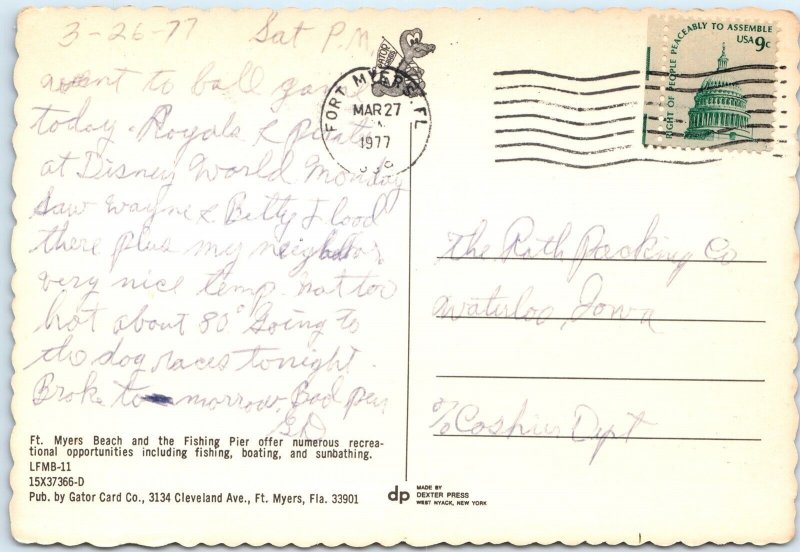 3-26-77 Sat P.M.
went to ball game
today. Royals & Pirates
at Disney World Monday
Saw Wayne & Betty Flood
there plus my neighbors
very nice temp. not too
hot about 80° Going to
the dog races tonight.
Broke tomorrow. Bad pen
GATOR
FORT MYERS, FL
MAR 27
1977
RIGHT OF PEOPLE PEACEABLY TO ASSEMBLE
USA 9c
The Rath Packing Co
Waterloo, Iowa
c/o Cashier Dept
Ft. Myers Beach and the Fishing Pier offer numerous recrea-
tional opportunities including fishing, boating, and sunbathing.
LFMB-11
15X37366-D
Pub. by Gator Card Co., 3134 Cleveland Ave., Ft. Myers, Fla. 33901
dp MADE BY
DEXTER PRESS
WEST NYACK, NEW YORK